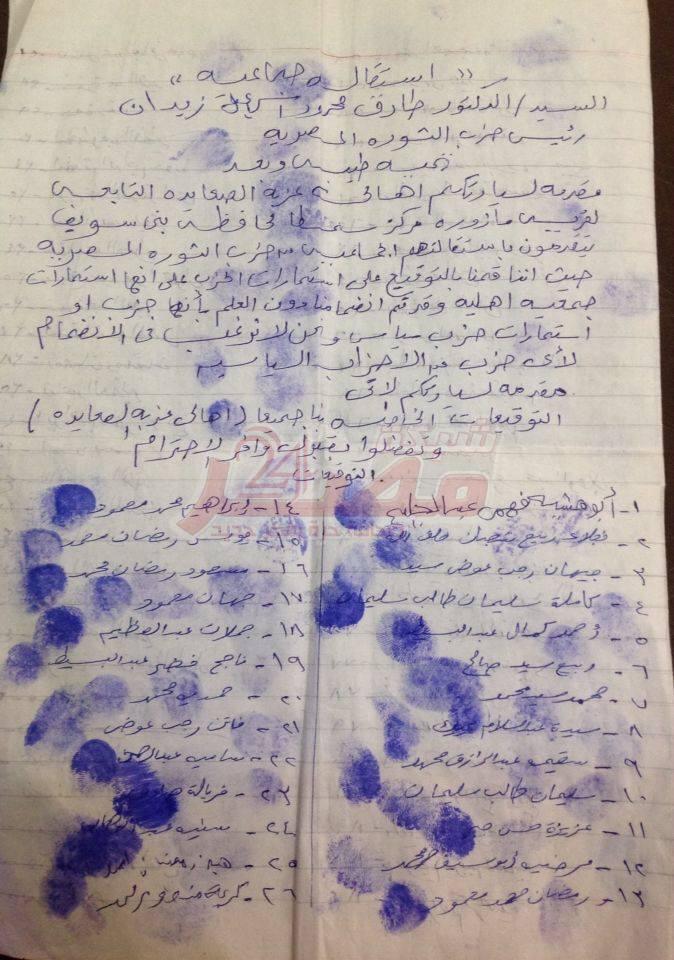 " استقاله جماعيه "
السيد / الدكتور طارق محمود اسماعيل زيدان
رئيس حزب الثوره المصريه
تحيه طيبه وبعد
مقدمه لسيادتكم اهالى عزبة الصعايده التابعه
لقرية مازوره مركز سمسطا محافظة بنى سويف
يتقدمون باستقالتهم الجماعيه من حزب الثوره المصريه
حيث اننا قمنا بالتوقيع على استمارات الحزب على انها استمارات
جمعيه اهليه وقد تم انضمامنا دون العلم بأنها حزب او
استمارات حزب سياسى ونحن لا نرغب فى الانضمام
لأى حزب من الاحزاب السياسيه
مقدمه لسيادتكم لاتى
التوقيعات الخاصه بنا جميعا ( اهالى عزبه الصعايده )
وتفضلوا بقبول وافر الاحترام
التوقيعات
١- أبو هشيمه فهمى عبدالحليم
٢- ربيع
٣- جيهان رجب عوض سيد
٤- كاملة سليمان طالب سليمان
٥- احمد كمال عبدالبسيط
٦- ربيع سيد صالح
٧- محمد سيد محمد
٨- سيدة عبدالسلام
٩- عبدالرازق محمد
١٠- سليمان طالب سليمان
١١- عزيزة حسن
١٢-
١٣- رمضان محمد محمود
١٤- ابراهيم محمد محمود
١٥- رمضان محمد
١٦- مسعود رمضان محمد
١٧- جهان محمود
١٨- جملات عبدالعظيم
١٩- ناجح خضر عبدالبسيط
٢٠- حمديه محمد
٢١- فاتن رجب عوض
٢٢- ساميه
٢٣- فريالة
٢٤-
٢٥-
٢٦- كريمة